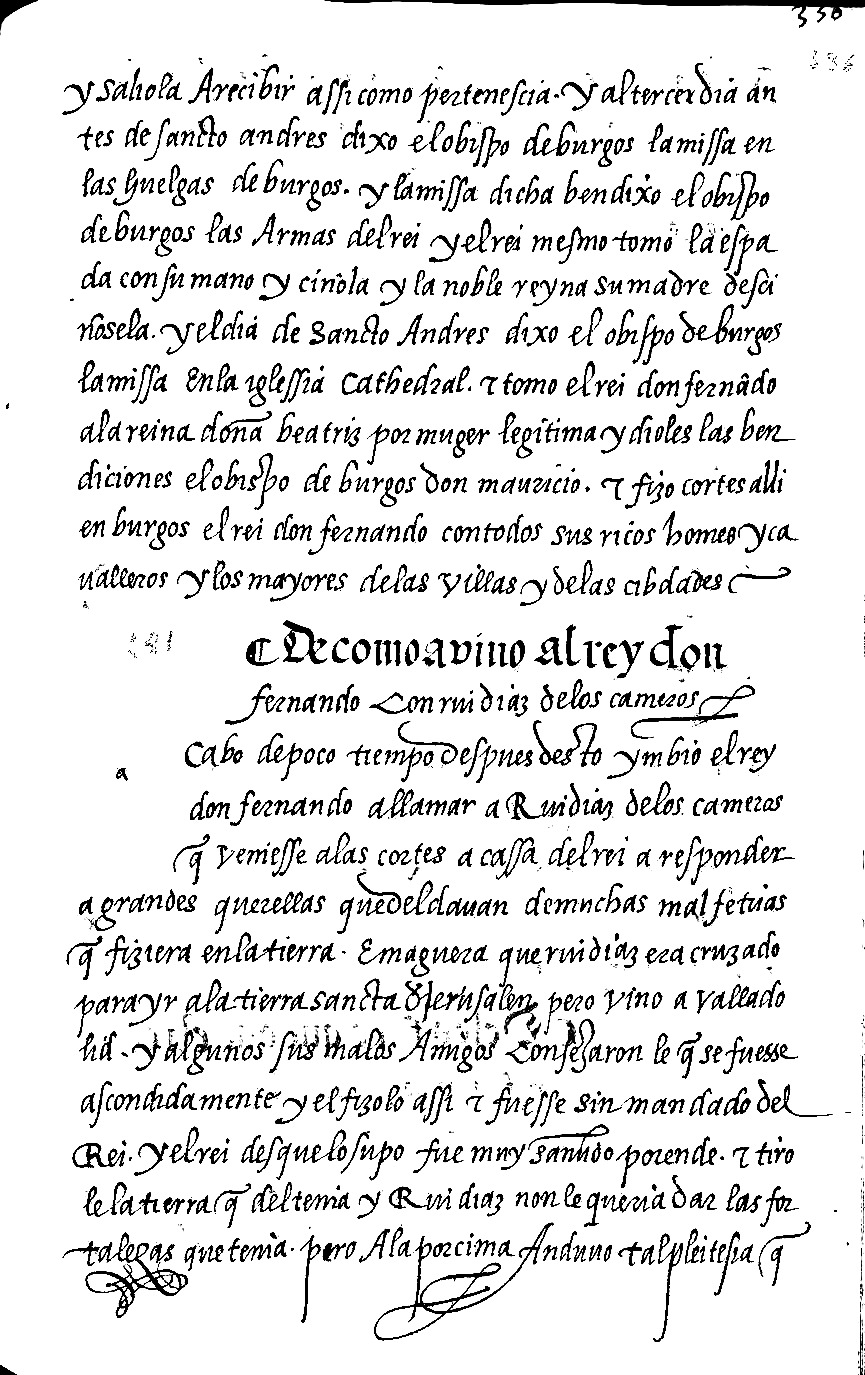 350
686
y saliola A recibir assi como pertenescia. y al tercer dia an
tes de sancto andres dixo el obispo de burgos la missa en
las huelgas de burgos. y la missa dicha bendixo el obispo
de burgos las Armas del rei y el rei mesmo tomo la espa
da con su mano y ciñola y la noble reyna su madre desci
ñosela. y el dia de Sancto Andres dixo el obispo de burgos
la missa En la iglessia Cathedral. τ tomo el rei don fernãdo
a la reina doña beatriz por muger legitima y dioles las ben
diciones el obispo de burgos don mauricio. τ fizo cortes alli
en burgos el rei don fernando con todos sus ricos homes y ca
ualleros y los mayores de las villas y de las cibdades
181
¶ De como avino al rey don
fernando Con rui diaz de los cameros
a
Cabo de poco tiempo despues desto ymbio el rey
don fernando a llamar a Rui diaz de los cameros
q̃ veniesse a las cortes a cassa del rei a responder
a grandes querellas que del dauan de muchas malfetrias
q̃ fiziera en la tierra. E maguera que rui diaz era cruzado
para yr a la tierra sancta d̃ Jerusalen pero vino a vallado
lid. y algunos sus malos Amigos Consejaron le q̃ se fuesse
ascondidamente y el fizolo assi τ fuesse sin mandado del
Rei. y el rei desque lo supo fue muy sañudo porende. τ tiro
le la tierra q̃ del tenia y Rui diaz non le queria dar las for
talezas que tenia. pero A la por cima Anduuo tal pleitesia q̃